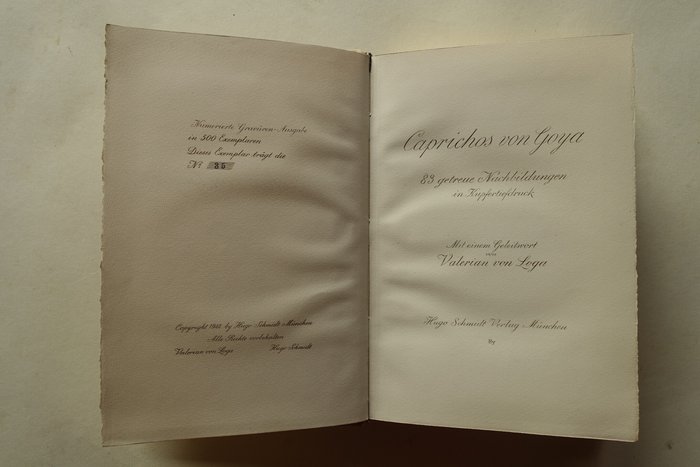 Numerierte Gravüren-Ausgabe
in 500 Exemplaren
Dieses Exemplar trägt die
No
Copyright by Hugo Schmidt München
Alle Rechte vorbehalten
Valerian von Loga Hugo Schmidt
Caprichos von Goya
83 getreue Nachbildungen
in Kupfertiefdruck
Mit einem Geleitwort
von
Valerian von Loga
Hugo Schmidt Verlag München